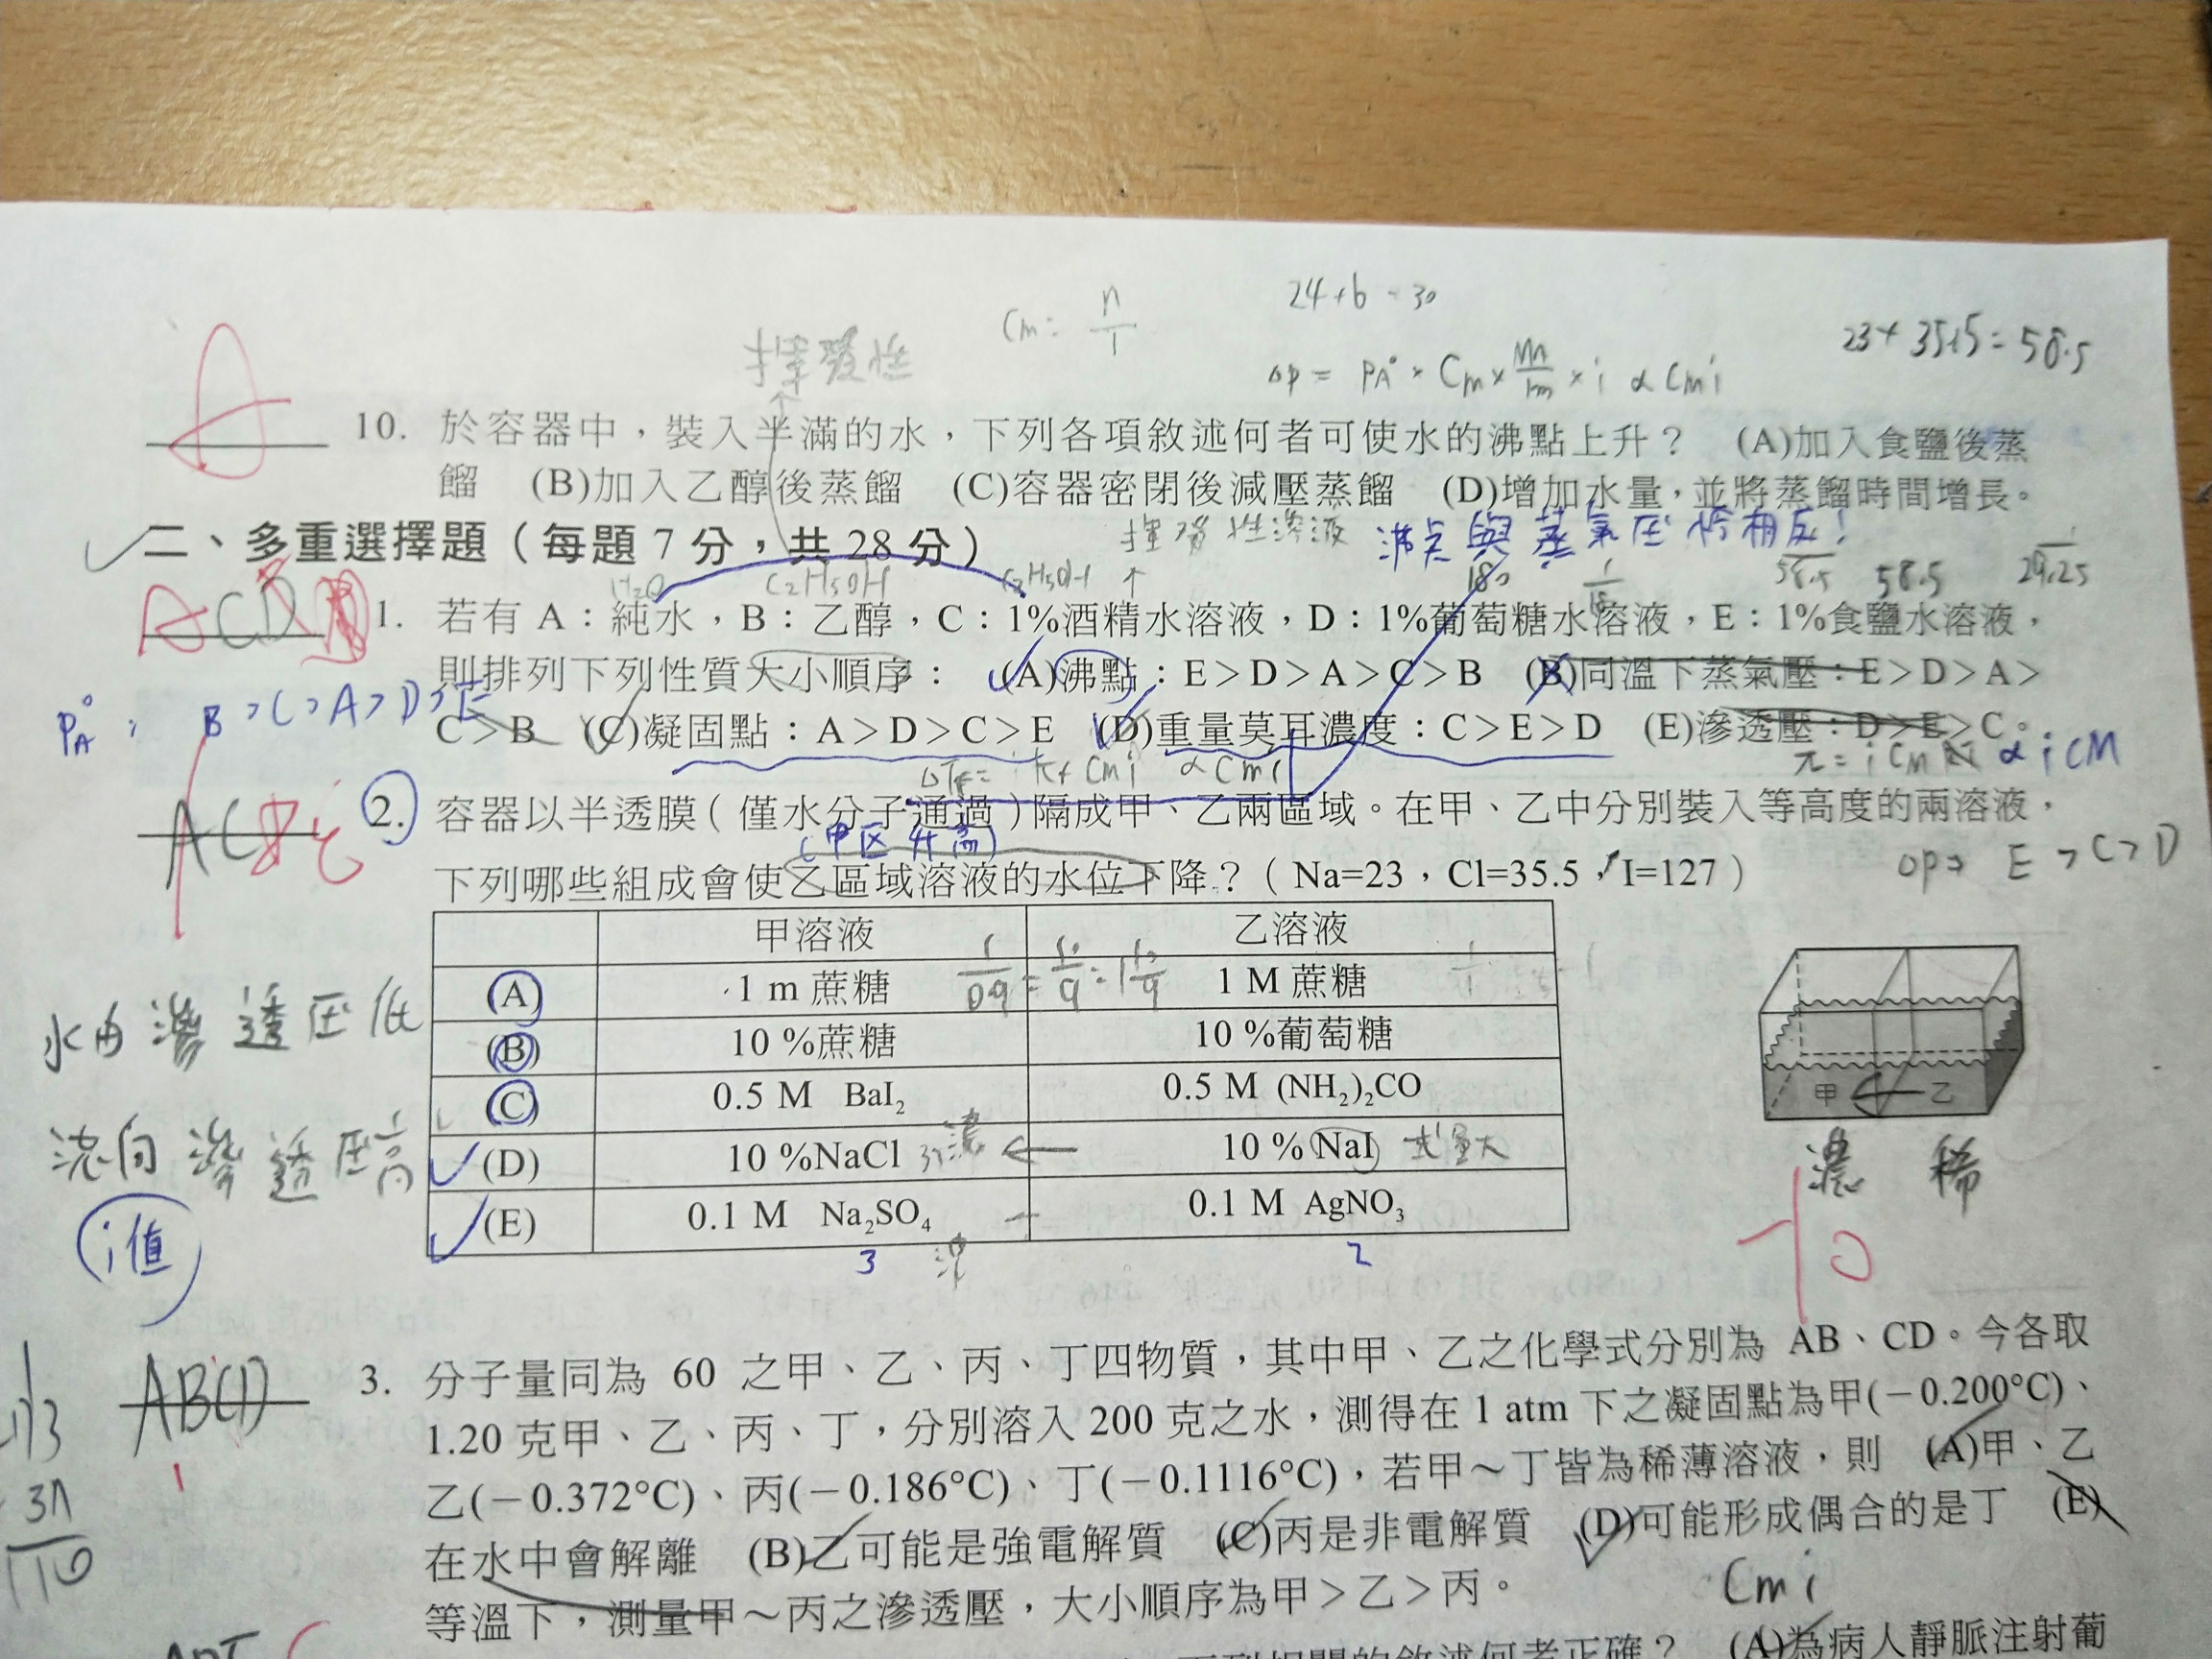 Cm = n/1
24+6=30
23+35.5=58.5
揮發性
ΔP = PA° × Cm × i ∝ Cmi
A
10. 於容器中，裝入半滿的水，下列各項敘述何者可使水的沸點上升？ (A)加入食鹽後蒸
餾 (B)加入乙醇後蒸餾 (C)容器密閉後減壓蒸餾 (D)增加水量，並將蒸餾時間增長。
揮發性溶液 沸點與蒸氣壓恰相反！
二、多重選擇題（每題 7 分，共 28 分）
H2O C2H5OH C2H5OH 180 58.5 29.25
ACD
1. 若有 A：純水，B：乙醇，C：1%酒精水溶液，D：1%葡萄糖水溶液，E：1%食鹽水溶液，
則排列下列性質大小順序： (A)沸點：E＞D＞A＞C＞B (B)同溫下蒸氣壓：E＞D＞A＞
PA° B>C>A>D>E
C＞B (C)凝固點：A＞D＞C＞E (D)重量莫耳濃度：C＞E＞D (E)滲透壓：D＞E＞C。
ΔTf = kf Cmi ∝ Cmi
∝ iCM
2. 容器以半透膜（僅水分子通過）隔成甲、乙兩區域。在甲、乙中分別裝入等高度的兩溶液，
(甲区升高)
E>C>D
下列哪些組成會使乙區域溶液的水位下降？（Na=23，Cl=35.5，I=127）
甲溶液 乙溶液
(A) 1 m 蔗糖 1 M 蔗糖
1/0.9 = 10/9
(B) 10 %蔗糖 10 %葡萄糖
(C) 0.5 M BaI2 0.5 M (NH2)2CO
(D) 10 %NaCl 濃 ← 10 % NaI 式量大
(E) 0.1 M Na2SO4 0.1 M AgNO3
3 2
水由滲透压低
流向滲透压高
i值
甲 ← 乙
濃 稀
3. 分子量同為 60 之甲、乙、丙、丁四物質，其中甲、乙之化學式分別為 AB、CD。今各取
1.20 克甲、乙、丙、丁，分別溶入 200 克之水，測得在 1 atm 下之凝固點為甲(－0.200°C)、
乙(－0.372°C)、丙(－0.186°C)、丁(－0.1116°C)，若甲～丁皆為稀薄溶液，則 (A)甲、乙
在水中會解離 (B)乙可能是強電解質 (C)丙是非電解質 (D)可能形成偶合的是丁 (E)
等溫下，測量甲～丙之滲透壓，大小順序為甲＞乙＞丙。
Cmi
下列相關的敘述何者正確？ (A)為病人靜脈注射葡